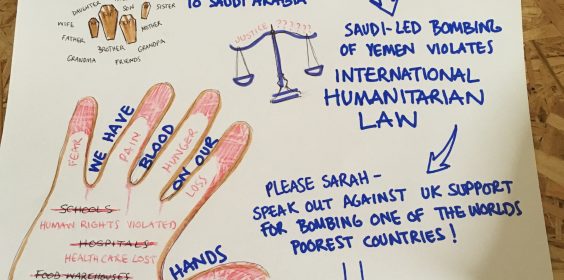 TO SAUDI ARABIA
DAUGHTER
SON
SISTER
WIFE
MOTHER
FATHER
BROTHER
GRANDPA
GRANDMA
FRIENDS
JUSTICE ??????
SAUDI-LED BOMBING
OF YEMEN VIOLATES
INTERNATIONAL
HUMANITARIAN
LAW
FEAR
WE HAVE
PAIN
BLOOD
HUNGER
ON OUR
LOSS
HANDS
SCHOOLS
HUMAN RIGHTS VIOLATED
HOSPITALS
HEALTHCARE LOST
FOOD WAREHOUSES
PLEASE SARAH -
SPEAK OUT AGAINST UK SUPPORT
FOR BOMBING ONE OF THE WORLDS
POOREST COUNTRIES!